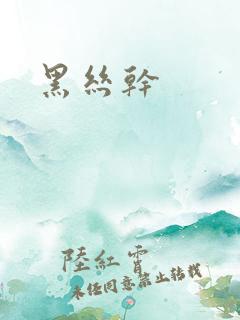 黑絲幹
陸紅霄
未經同意禁止轉載